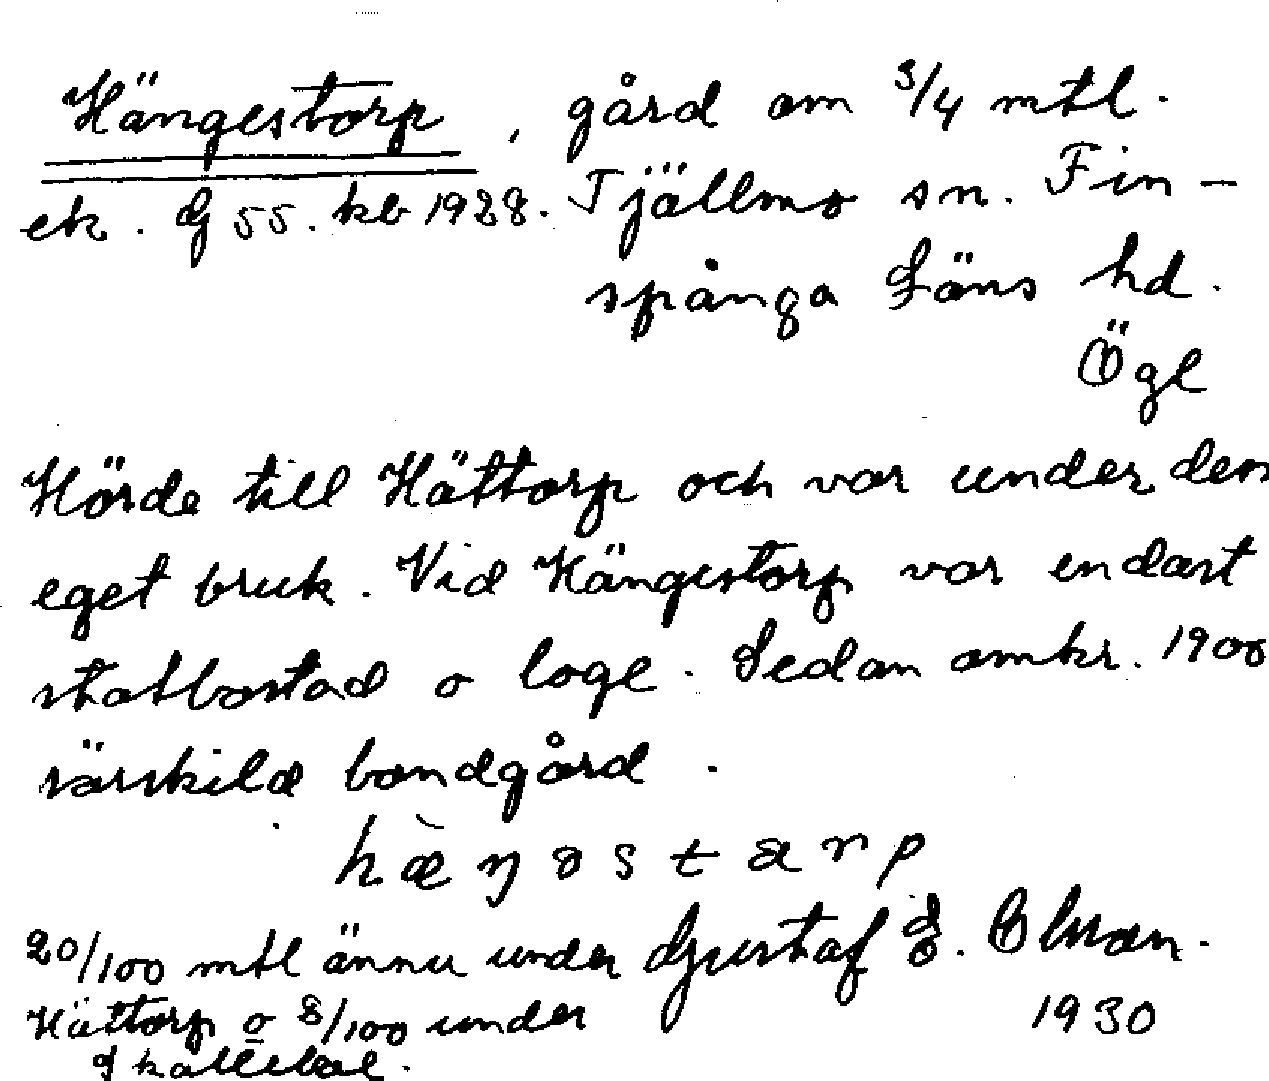 Hängestorp, gård om 3/4 mtl.
ek. G 55. kb 1928. Tjällmo sn. Fin-
spånga Läns hd.
Ögl
Hörde till Hättorp och var under dem
eget bruk. Vid Hängestorp var endast
statbostad o loge. Sedan omkr. 1900
särskild bondgård.
hæŋɘstarp
20/100 mtl ännu under Gustaf E. Olsson.
Hättorp o 8/100 under 1930